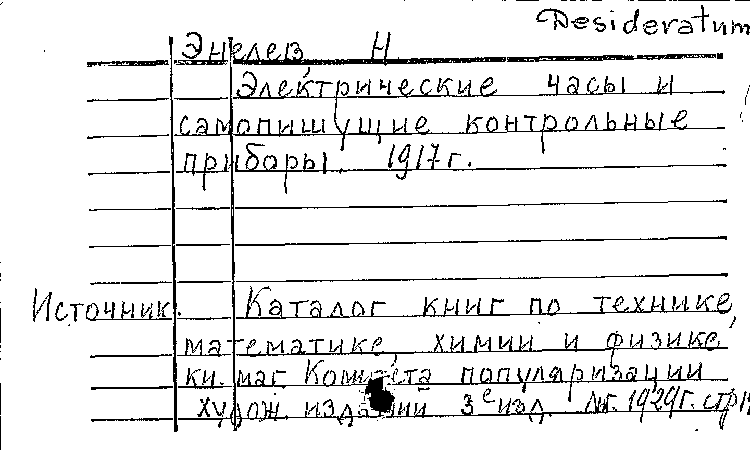 Desideratum
Энелев Н
Электрические часы и
самопишущие контрольные
приборы. 1917 г.
Источник. Каталог книг по технике,
математике, химии и физике
кн. маг. Комитета популяризации
худож. изданий 3е изд. 1929 г. стр